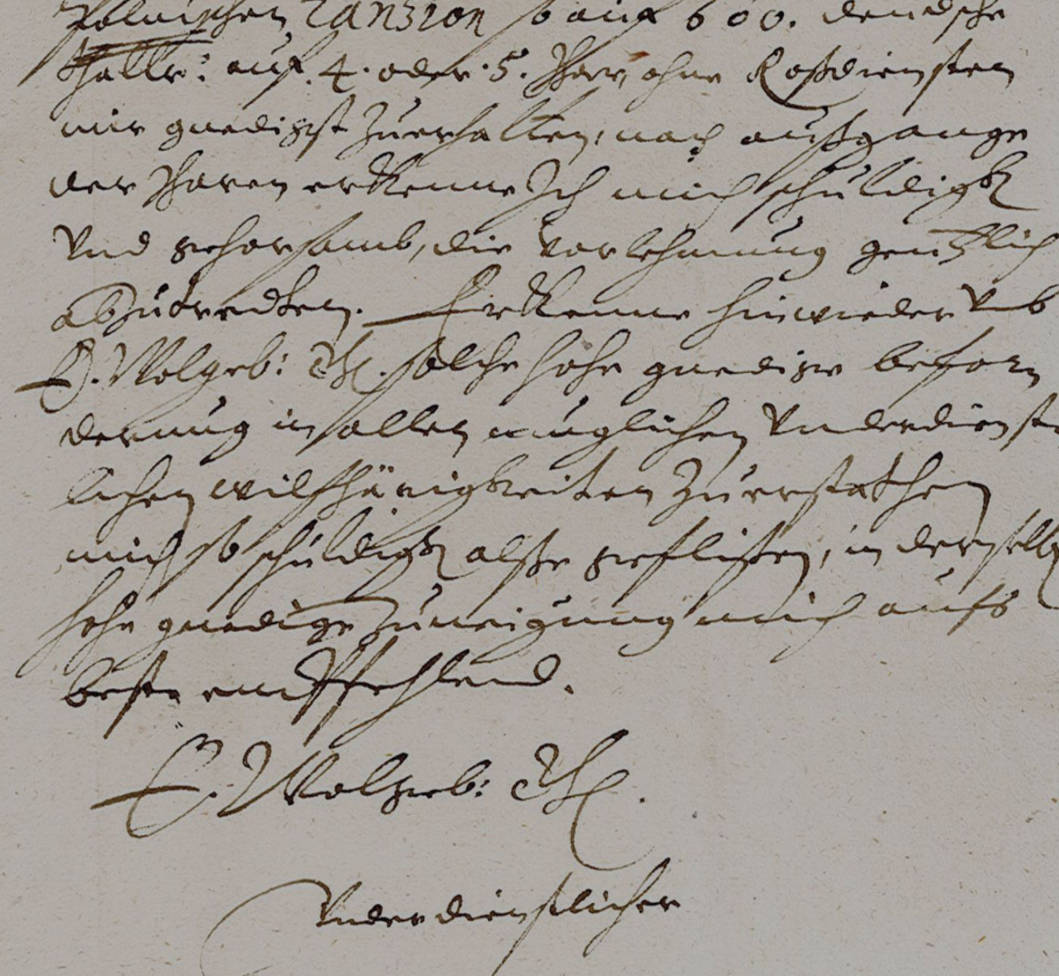 Polnischen Ranzion so auf 600. deudsche
Thaller: auf. 4. oder. 5. Jhar, ohne Roßdiensten
mir gnedigst zuerhalten, nach außgange
der Jharen erkenne Ich mich schüldigk
Vnd gehorsamb, die vorlehnung gentzlich
abzutredten. Erkenne hinwieder vmb
E. Wolgeb: Gh. solche hohe gnedige befor
derung in allen muglichen Vnderdienst
lichen wilfhärigkeiten zuerstathen
mich so schüldigk alße gefließen, in derselb
hohe gnedige zuneigung mich aufs
beste empffehlend.
E. Wolgeb: Gh.
Vnderdienstlicher